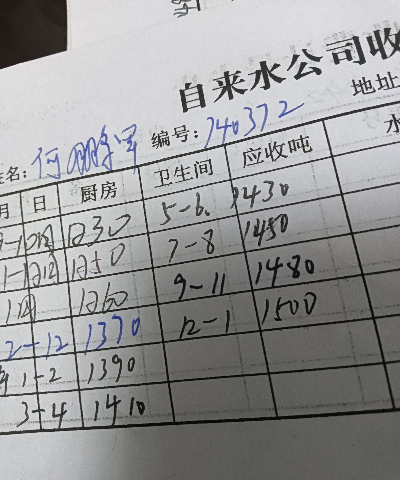 自来水公司收
姓名: 何 编号: 740372 地址
月 日 厨房 卫生间 应收吨 水
1230 5-6 1430
1250 7-8 1450
1260 9-11 1480
2-12 1370 12-1 1500
1-2 1390
3-4 1410